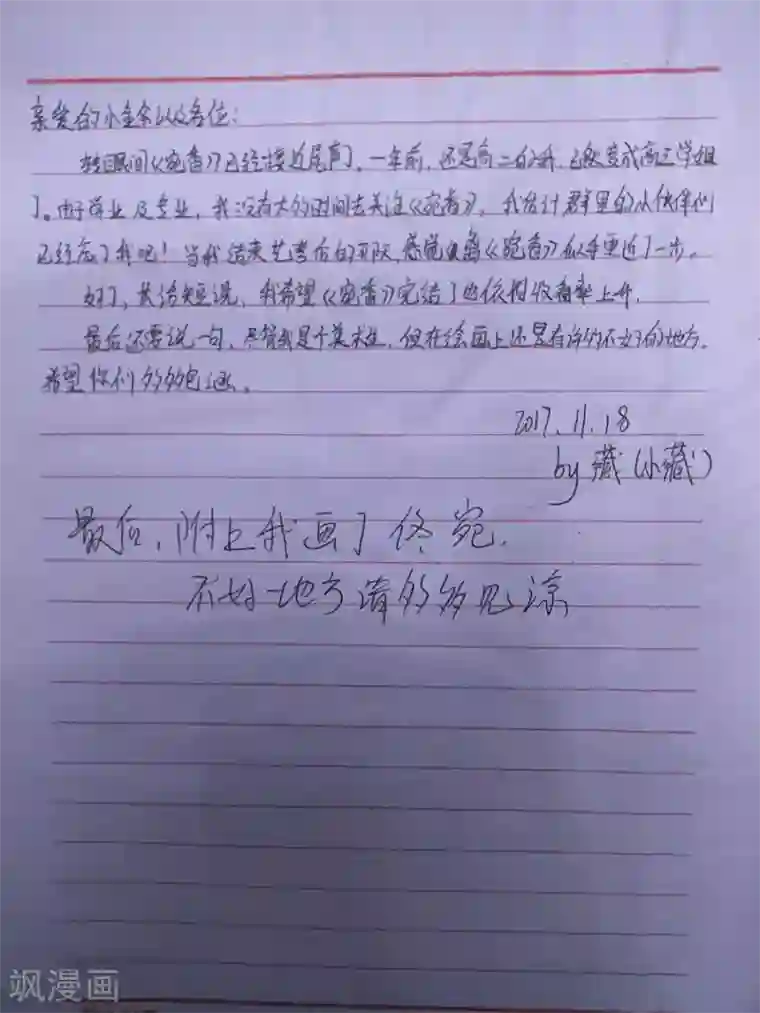 亲爱的小金余以及各位:
转眼间《宛香》已经接近尾声了,一年前,还是高二的我,已然变成高三学姐
了。由于学业及专业,我没有太多时间去关注《宛香》,我估计群里的小伙伴们
已经忘了我吧!当我结束艺考后的 感觉 离《宛香》似乎更近了一步。
好了,长话短说,我希望《宛香》完结了也依旧收看率上升,
最后还要说一句,尽管我是个美术生,但在绘画上还是有许多不好的地方,
希望你们多多包涵。
2017.11.18
by 藏(小藏)
最后,附上我画了佟宛,
不好地方请多多见谅
飒漫画